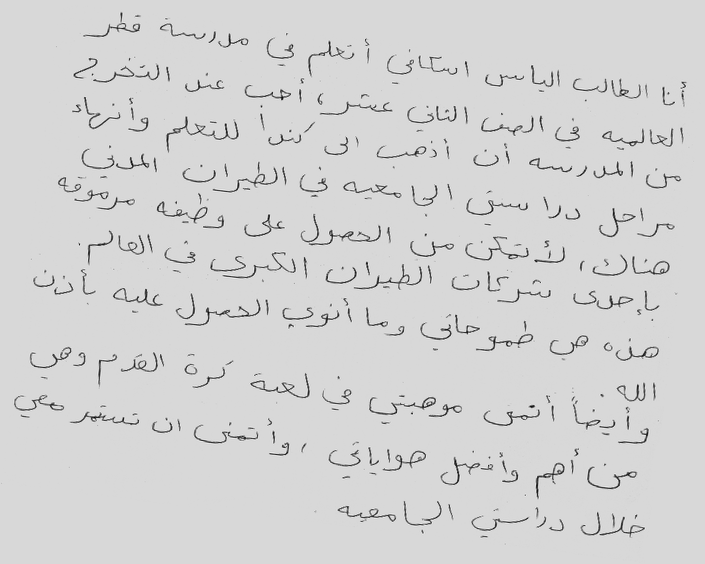 أنا الطالب الياس استكافي أتعلم في مدرسة قطر
العالميه في الصف الثاني عشر، أحب عند التخرج
من المدرسه أن أذهب الى كندا للتعلم وأنهاء
مراحل دراستي الجامعيه في الطيران المدني
هناك، لأتمكن من الحصول على وظيفه مرموقه
بإحدى شركات الطيران الكبرى في العالم.
هذه هي طموحاتي وما أنوي الحصول عليه بأذن
الله.
وأيضاً أتمنى موهبتي في لعبة كرة القدم وهي
من أهم وأفضل هواياتي، وأتمنى ان تستمر معي
خلال دراستي الجامعيه